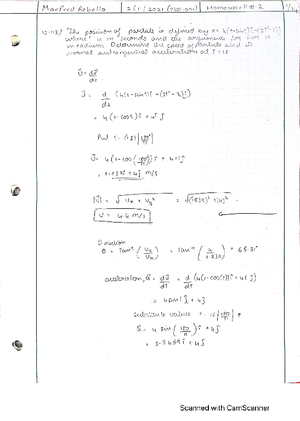 Manfred Rebello 2/11/2021 Homework # 2
The position of particle is defined by r = {4(t-sin t)i + (2t²-3)j}
where t is in seconds and the argument for sine is
in radians. Determine the speed of particle and its
normal and tangential acceleration at t = 1s
v = dr/dt
v = d/dt {4(t-sin t)i + (2t²-3)j}
= 4(1-cos t)i + 4tj
Put t =
= 1.839i + 4j m/s
|v| = √Vx² + Vy² = √(1.839)² + (4)²
v = 4.4 m/s
Direction
θ = tan⁻¹(Vy/Vx) = tan⁻¹(4/1.839) = 65.31°
acceleration, a = dv/dt = d/dt (4(1-cos t)i + 4tj)
= 4 sin t i + 4j
Substitute values
= 3.3659i + 4j
Scanned with CamScanner